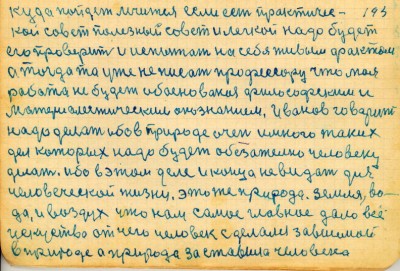 куда пойдем лечится если ест практиче- 195
кой совет полезный совет и легкой надо будет
его проверит и испытат на себя живым фрактом
а тогда та уже не писат профессору что моя
работа не будет обоснования философским и
материалестическим опознанием, Иванов говарит
надо делат ибо в природе очен имного таких
дел которых надо будет обезателно человеку
делат. ибо в этом деле и конца невидат для
человеческой жизни, это же природа. Земля, во-
да, и воздух что нам самое главное дало всё
искуство от чего человек сделалй зависимой
в природе а природа заставила человека